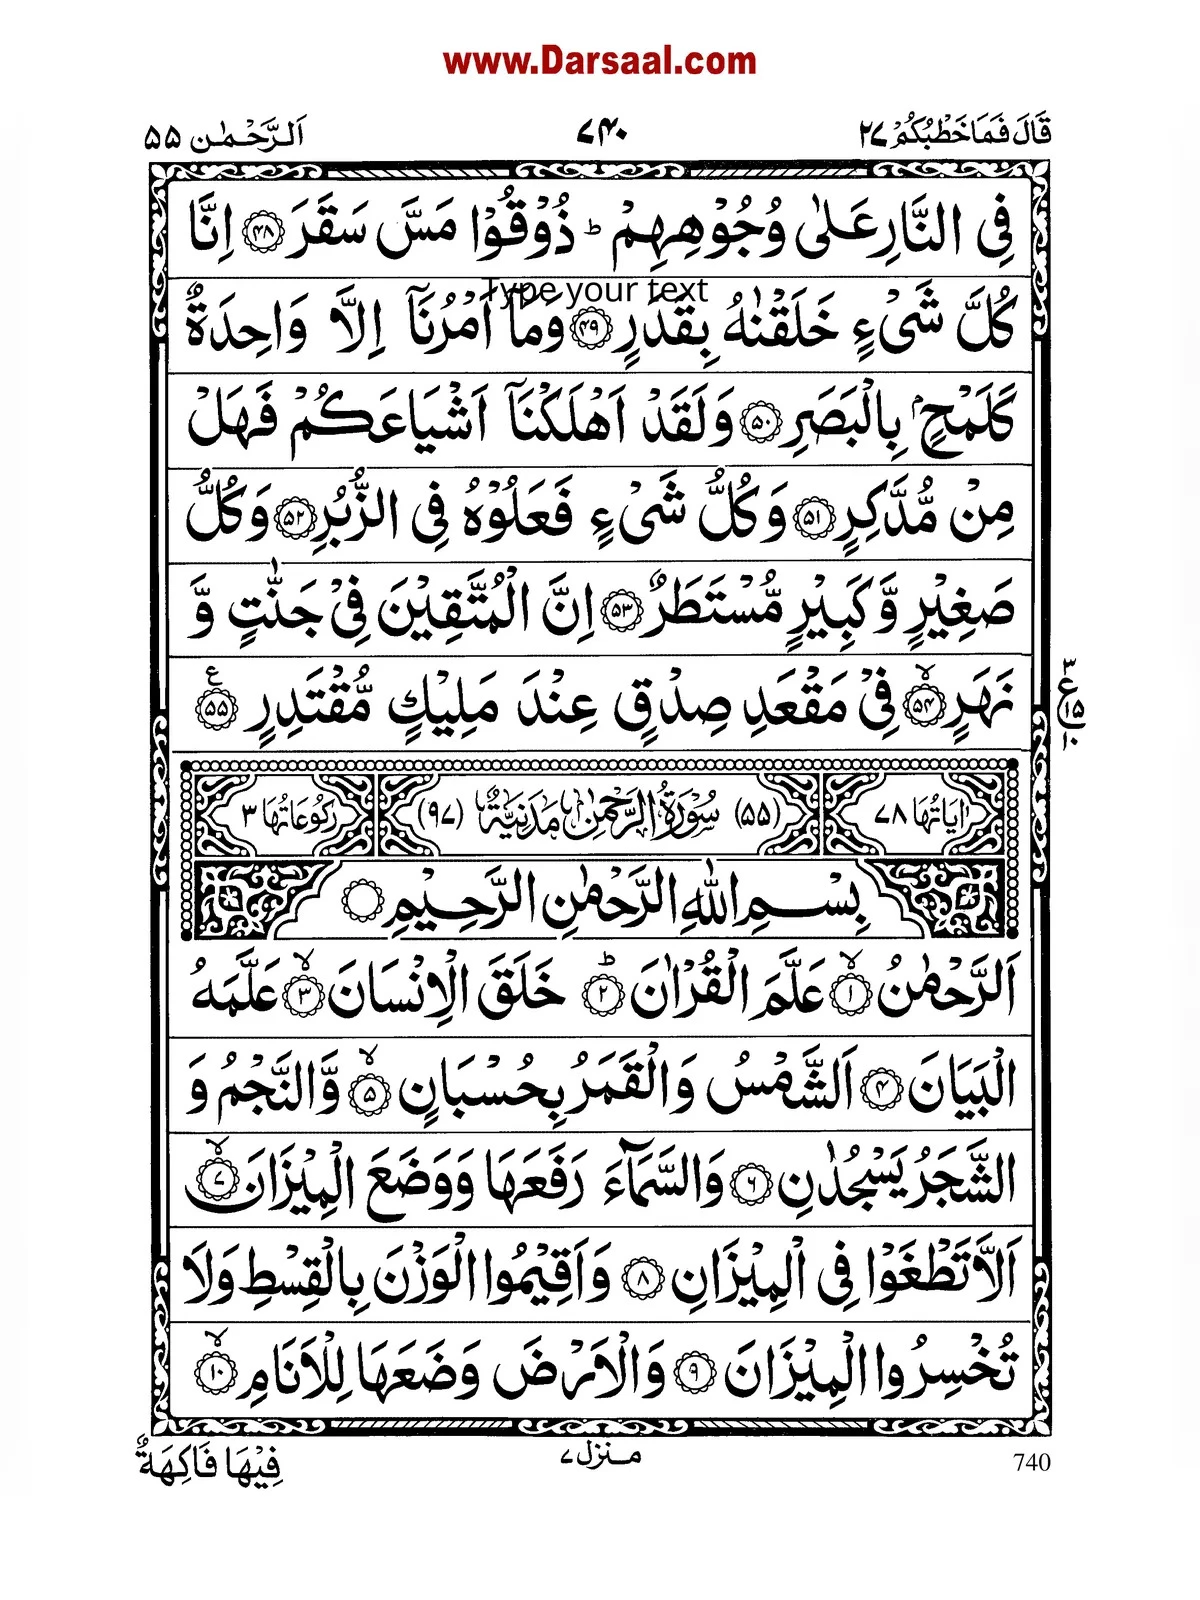 www.Darsaal.com
قَالَ فَمَا خَطْبُكُمْ ۲۷
۷۴۰
اَلرَّحْمٰن ۵۵
فِی النَّارِ عَلٰی وُجُوْهِهِمْ ؕ ذُوْقُوْا مَسَّ سَقَرَ ﴿۴۸﴾ اِنَّا
Type your text
کُلَّ شَیْءٍ خَلَقْنٰهُ بِقَدَرٍ ﴿۴۹﴾ وَمَاۤ اَمْرُنَاۤ اِلَّا وَاحِدَةٌ
کَلَمْحٍۭ بِالْبَصَرِ ﴿۵۰﴾ وَلَقَدْ اَهْلَکْنَاۤ اَشْیَاعَکُمْ فَهَلْ
مِنْ مُّدَّکِرٍ ﴿۵۱﴾ وَکُلُّ شَیْءٍ فَعَلُوْهُ فِی الزُّبُرِ ﴿۵۲﴾ وَکُلُّ
صَغِیْرٍ وَّکَبِیْرٍ مُّسْتَطَرٌ ﴿۵۳﴾ اِنَّ الْمُتَّقِیْنَ فِیْ جَنّٰتٍ وَّ
نَهَرٍ ﴿ۙ۵۴﴾ فِیْ مَقْعَدِ صِدْقٍ عِنْدَ مَلِیْكٍ مُّقْتَدِرٍ ﴿۵۵﴾ ع
۳
ع
۱۵
۱۰
اٰیَاتُهَا ۷۸ (۵۵) سُوْرَةُ الرَّحْمٰنِ مَدَنِیَّةٌ (۹۷) رُکُوْعَاتُهَا ۳
بِسْمِ اللهِ الرَّحْمٰنِ الرَّحِیْمِ
اَلرَّحْمٰنُ ﴿ۙ۱﴾ عَلَّمَ الْقُرْاٰنَ ﴿ؕ۲﴾ خَلَقَ الْاِنْسَانَ ﴿ۙ۳﴾ عَلَّمَهُ
الْبَیَانَ ﴿۴﴾ اَلشَّمْسُ وَالْقَمَرُ بِحُسْبَانٍ ﴿ۙ۵﴾ وَّالنَّجْمُ وَ
الشَّجَرُ یَسْجُدٰنِ ﴿۶﴾ وَالسَّمَآءَ رَفَعَهَا وَوَضَعَ الْمِیْزَانَ ﴿ۙ۷﴾
اَلَّا تَطْغَوْا فِی الْمِیْزَانِ ﴿۸﴾ وَاَقِیْمُوا الْوَزْنَ بِالْقِسْطِ وَلَا
تُخْسِرُوا الْمِیْزَانَ ﴿۹﴾ وَالْاَرْضَ وَضَعَهَا لِلْاَنَامِ ﴿ۙ۱۰﴾
740
منزل ۷
فِیْهَا فَاکِهَةٌ